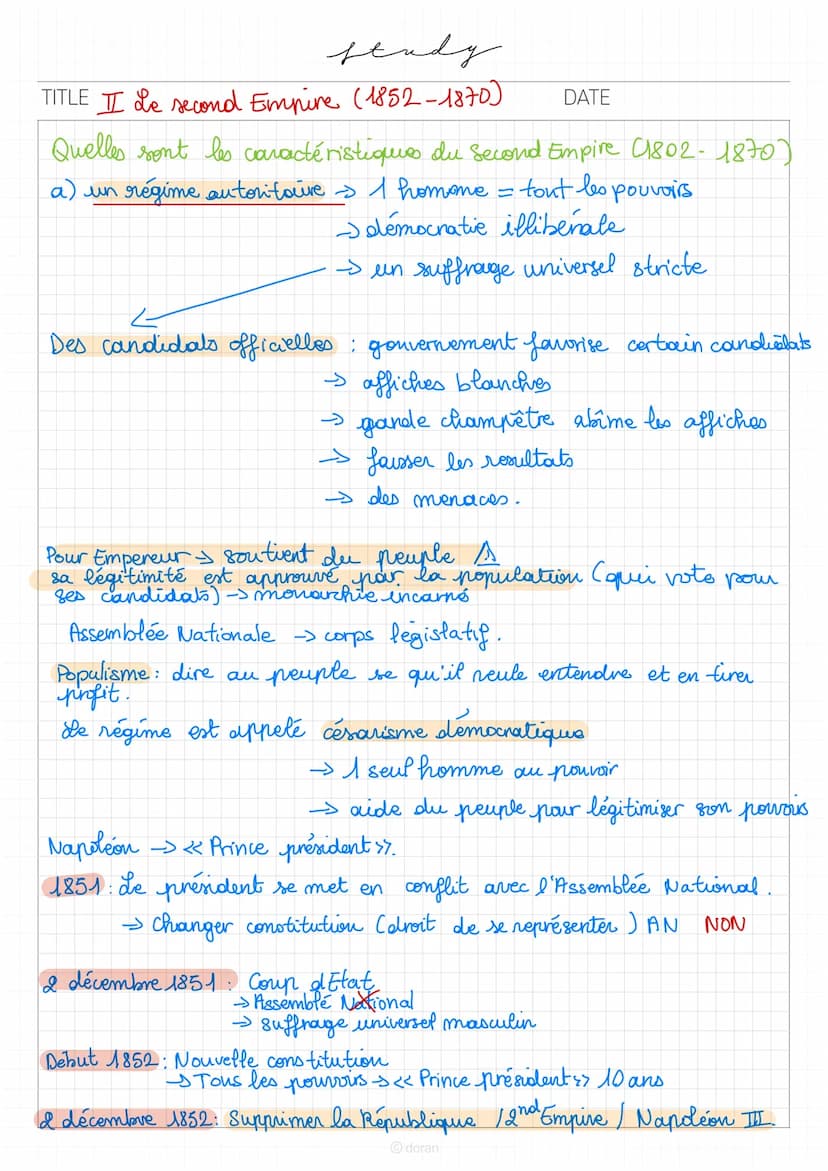 study
TITLE II Le second Empire (1852-1870) DATE
Quelles sont les caractéristiques du Second Empire (1802-1870)
a) un régime autoritaire → 1 homome = tout les pouvoirs
→ démocratie illibérale
→ un suffrage universel stricte
Des candidats officielles : gouvernement favorise certain candidats
→ affiches blanches
→ garde champêtre abîme les affiches
→ fausser les resultats
→ des menaces.
Pour Empereur → soutient du peuple ⚠
sa légitimité est approuvé par la population (qui vote pour
ses candidats) → monarchie incarné
Assemblée Nationale → corps législatif.
Populisme : dire au peuple se qu'il veule entendre et en tirer
profit.
Le régime est appelé césarisme démocratique
→ 1 seul homme au pouvoir
→ aide du peuple pour légitimiser son pouvois
Napoléon → << Prince président >>.
1851 : Le président se met en conflit avec l'Assemblée National.
→ Changer constitution (droit de se représenter) AN NON
2 décembre 1851 : Coup d'Etat
→ Assemblé National
→ suffrage universel masculin
Début 1852 : Nouvelle constitution
→ Tous les pouvoirs → << Prince président >> 10 ans
2 décembre 1852 : Supprimer la République / 2nd Empire / Napoléon III.
© doran